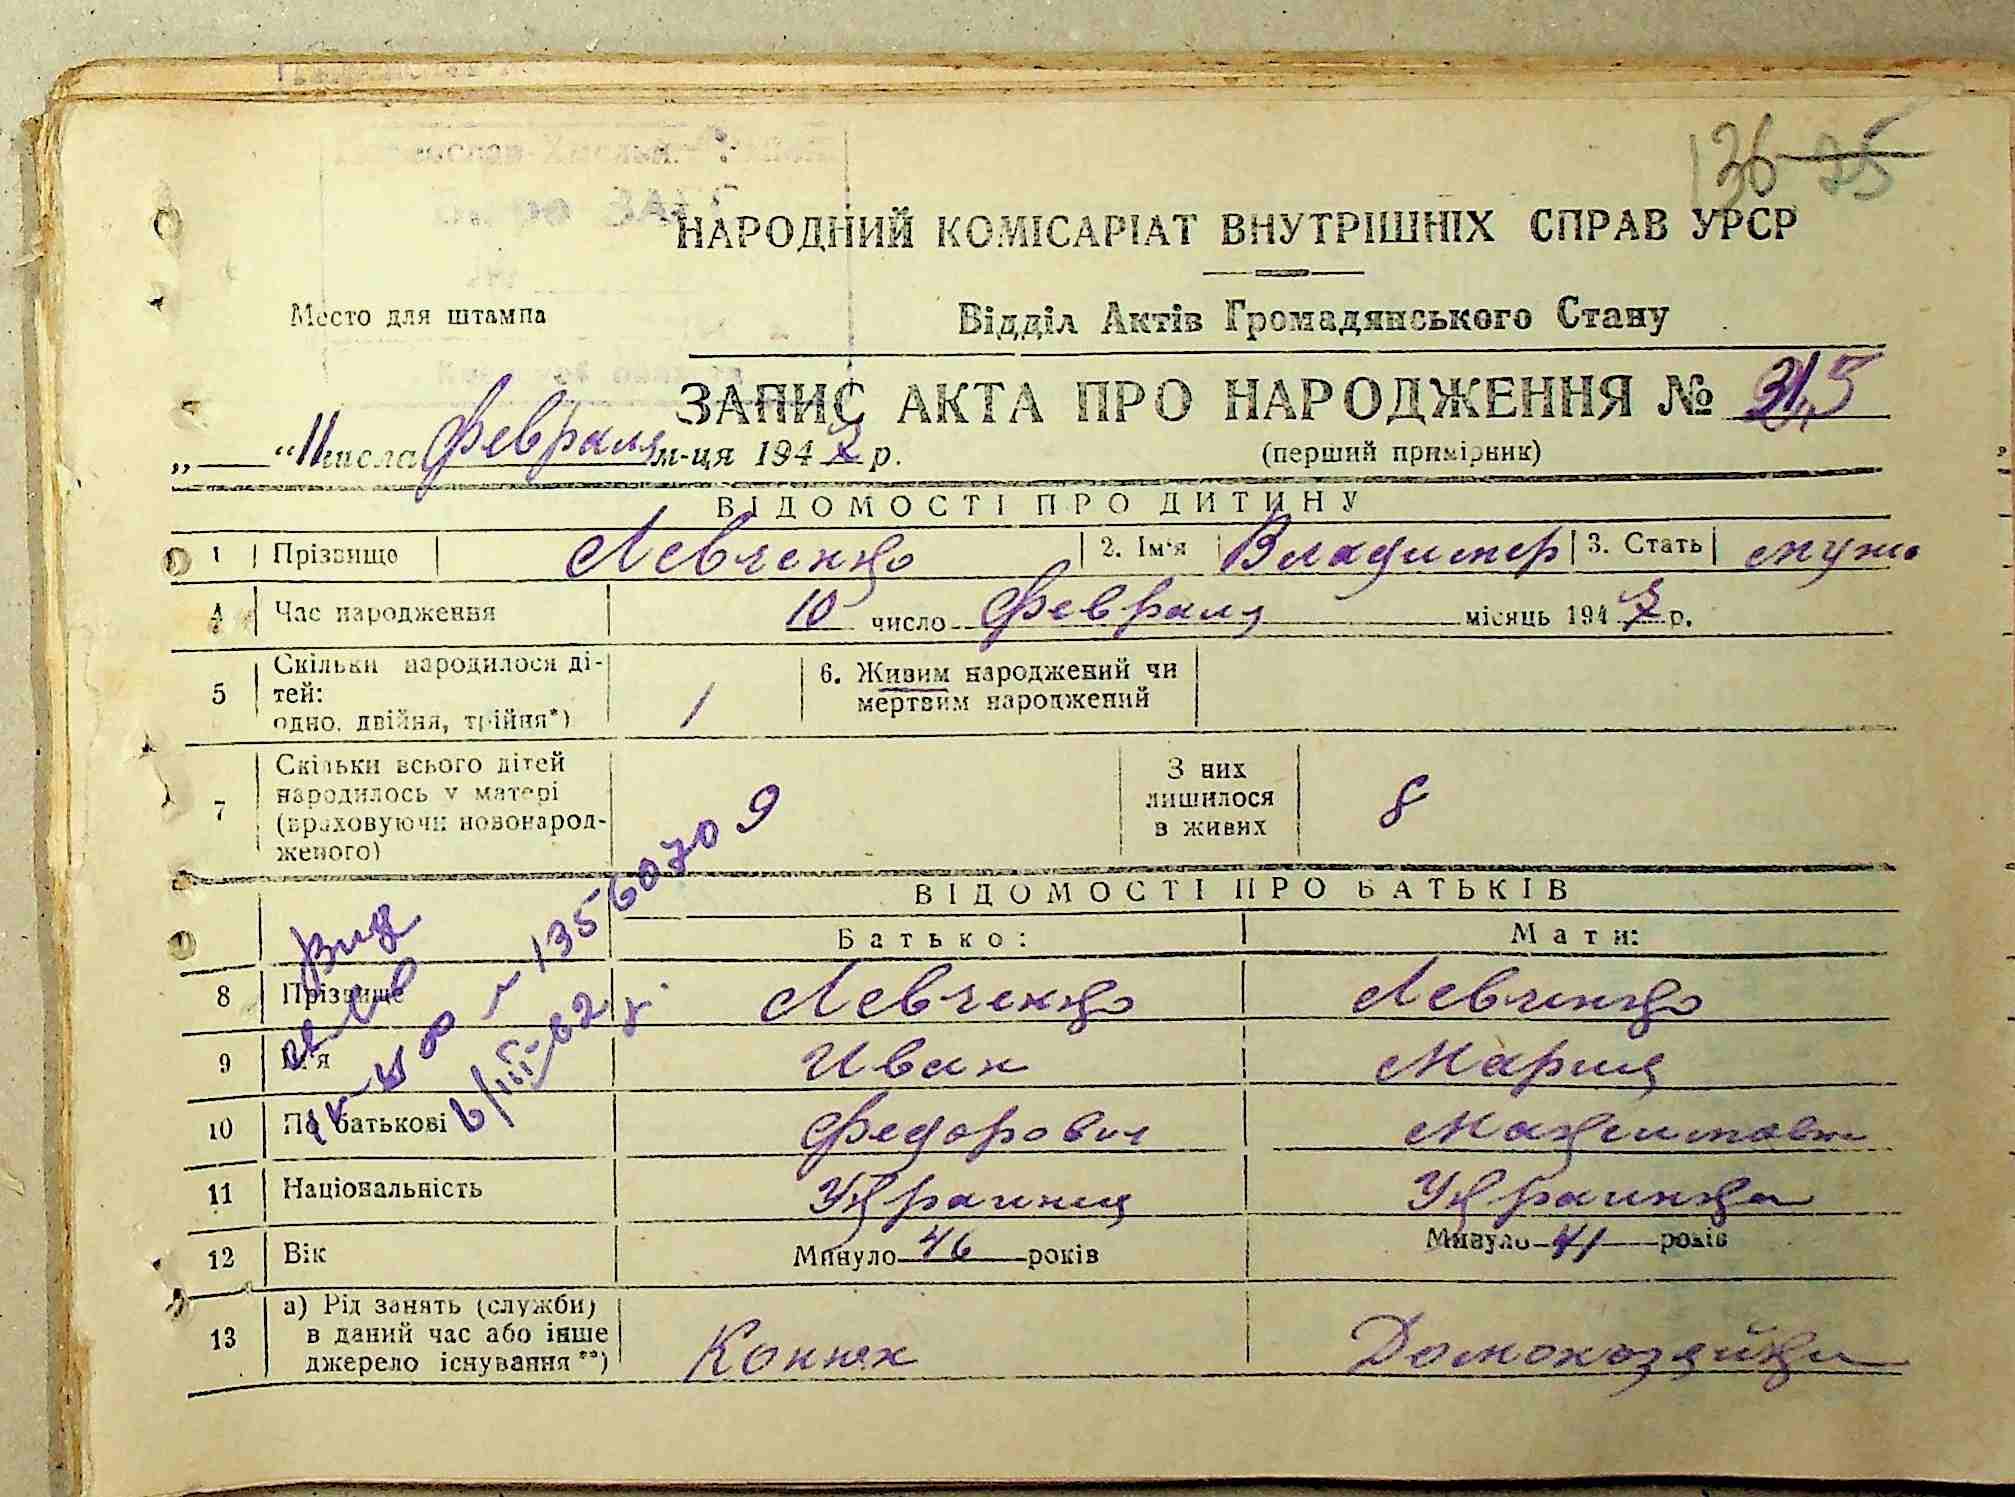 136 25
НАРОДНИЙ КОМІСАРІАТ ВНУТРІШНІХ СПРАВ УРСР
Место для штампа
Відділ Актів Громадянського Стану
ЗАПИС АКТА ПРО НАРОДЖЕННЯ №
„ “ 11 числа Февраля м-ця 194 р.
(перший примірник)
ВІДОМОСТІ ПРО ДИТИНУ
1 Прізвище Левченко 2. Ім'я Владимер 3. Стать муж.
4 Час народження 10 число Февраля місяць 194 р.
5 Скільки народилося ді-
тей:
одно, двійня, трійня*) 1
6. Живим народжений чи
мертвим народжений
7 Скільки всього дітей
народилось у матері
(враховуючи новонарод-
женого) 9
З них
лишилося
в живих 8
ВІДОМОСТІ ПРО БАТЬКІВ
Батько: Мати:
8 Прізвище Левченко Левченко
9 Ім'я Иван Мария
10 По батькові Федорович Максимовн
11 Національність Украинец Украинка
12 Вік Минуло 46 років Минуло 41 років
13 а) Рід занять (служби)
в даний час або інше
джерело існування**) Конюх Домохозяйка
Вид
1356070
6/III-62 г.